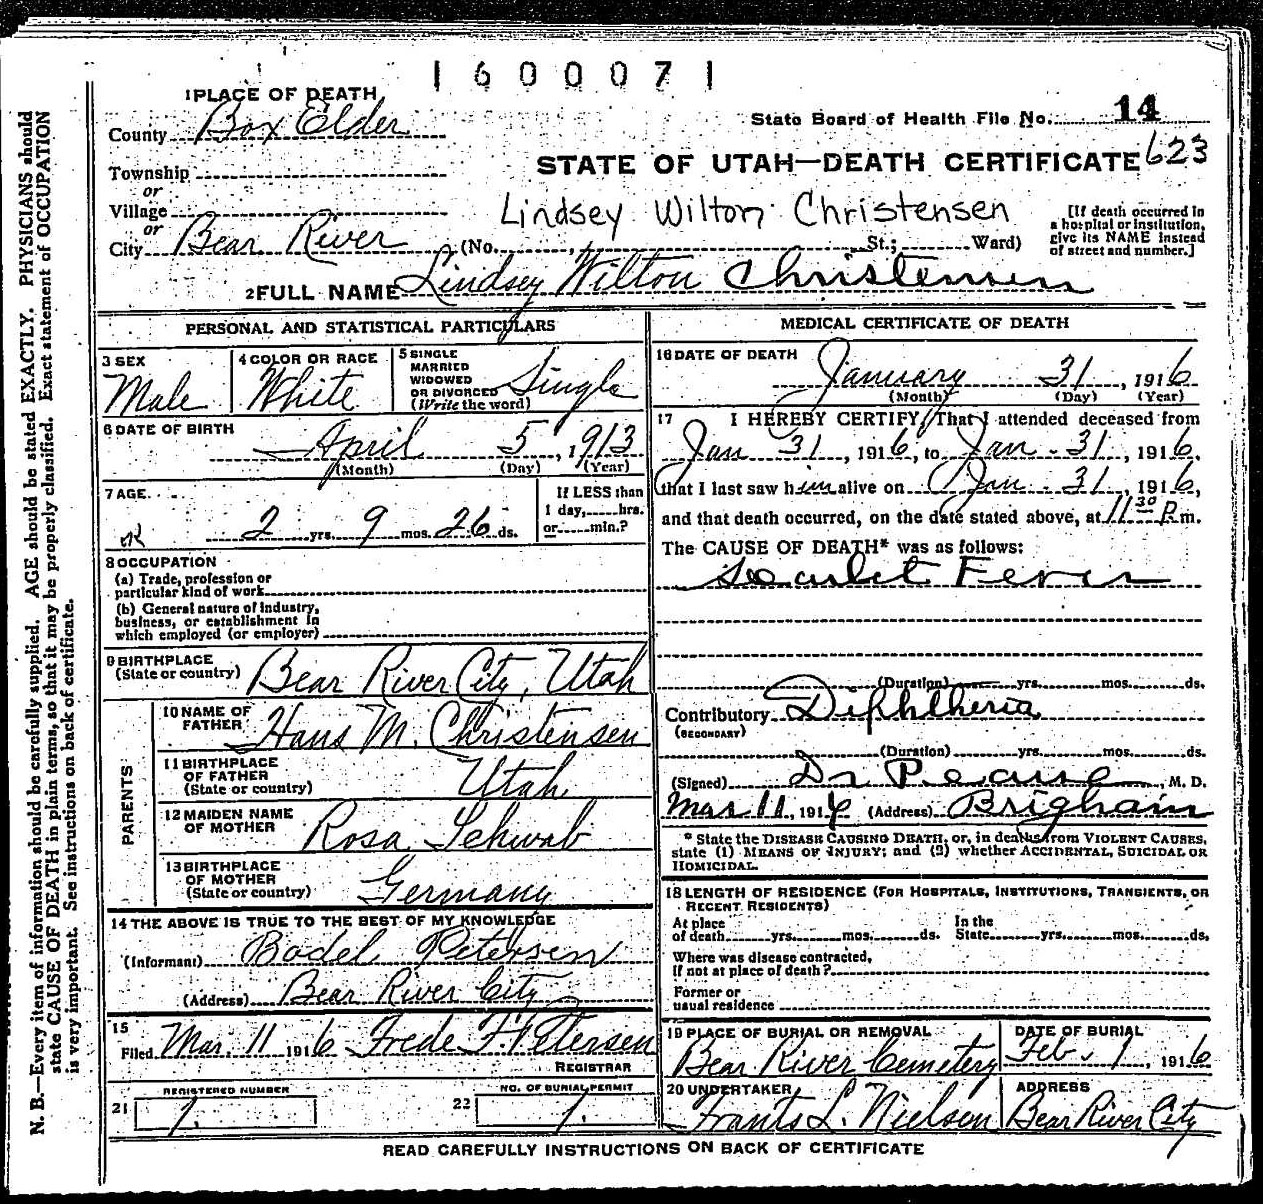 1600071
1 PLACE OF DEATH
County Box Elder
State Board of Health File No. 14
Township
STATE OF UTAH—DEATH CERTIFICATE 623
or
Village
Lindsey Wilton Christensen
or
City Bear River (No. St.; Ward)
[If death occurred in
a hospital or institution,
give its NAME instead
of street and number.]
2 FULL NAME Lindsey Wilton Christensen
PERSONAL AND STATISTICAL PARTICULARS
3 SEX
Male
4 COLOR OR RACE
White
5 SINGLE
MARRIED
WIDOWED
OR DIVORCED
(Write the word)
Single
6 DATE OF BIRTH
April 5, 1913
(Month) (Day) (Year)
7 AGE
2 yrs. 9 mos. 26 ds.
If LESS than
1 day, hrs.
or min.?
8 OCCUPATION
(a) Trade, profession or
particular kind of work
(b) General nature of industry,
business, or establishment in
which employed (or employer)
9 BIRTHPLACE
(State or country) Bear River City, Utah
PARENTS
10 NAME OF
FATHER Hans M. Christensen
11 BIRTHPLACE
OF FATHER
(State or country) Utah
12 MAIDEN NAME
OF MOTHER Rosa Schwab
13 BIRTHPLACE
OF MOTHER
(State or country) Germany
14 THE ABOVE IS TRUE TO THE BEST OF MY KNOWLEDGE
(Informant) Bodel Petersen
(Address) Bear River City
15
Filed Mar. 11 1916 Frede F. Petersen
REGISTRAR
REGISTERED NUMBER
21 1.
NO. OF BURIAL PERMIT
22 1.
MEDICAL CERTIFICATE OF DEATH
16 DATE OF DEATH
January 31, 1916
(Month) (Day) (Year)
17 I HEREBY CERTIFY, That I attended deceased from
Jan 31, 1916, to Jan. 31, 1916,
that I last saw him alive on Jan. 31, 1916,
and that death occurred, on the date stated above, at 11 30 P.m.
The CAUSE OF DEATH* was as follows:
Scarlet Fever
(Duration) yrs. mos. ds.
Contributory Diphtheria
(SECONDARY)
(Duration) yrs. mos. ds.
(Signed) Dr Pearse, M. D.
Mar 11, 1916 (Address) Brigham
* State the DISEASE CAUSING DEATH, or, in deaths from VIOLENT CAUSES,
state (1) MEANS OF INJURY; and (2) whether ACCIDENTAL, SUICIDAL OR
HOMICIDAL.
18 LENGTH OF RESIDENCE (FOR HOSPITALS, INSTITUTIONS, TRANSIENTS, OR
RECENT RESIDENTS)
At place
of death yrs. mos. ds.
In the
State yrs. mos. ds.
Where was disease contracted,
if not at place of death?
Former or
usual residence
19 PLACE OF BURIAL OR REMOVAL
Bear River Cemetery
DATE OF BURIAL
Feb. 1, 1916
20 UNDERTAKER
Frants L. Nielsen
ADDRESS
Bear River City
READ CAREFULLY INSTRUCTIONS ON BACK OF CERTIFICATE
N. B.—Every item of information should be carefully supplied. AGE should be stated EXACTLY. PHYSICIANS should
state CAUSE OF DEATH in plain terms, so that it may be properly classified. Exact statement of OCCUPATION
is very important. See instructions on back of certificate.